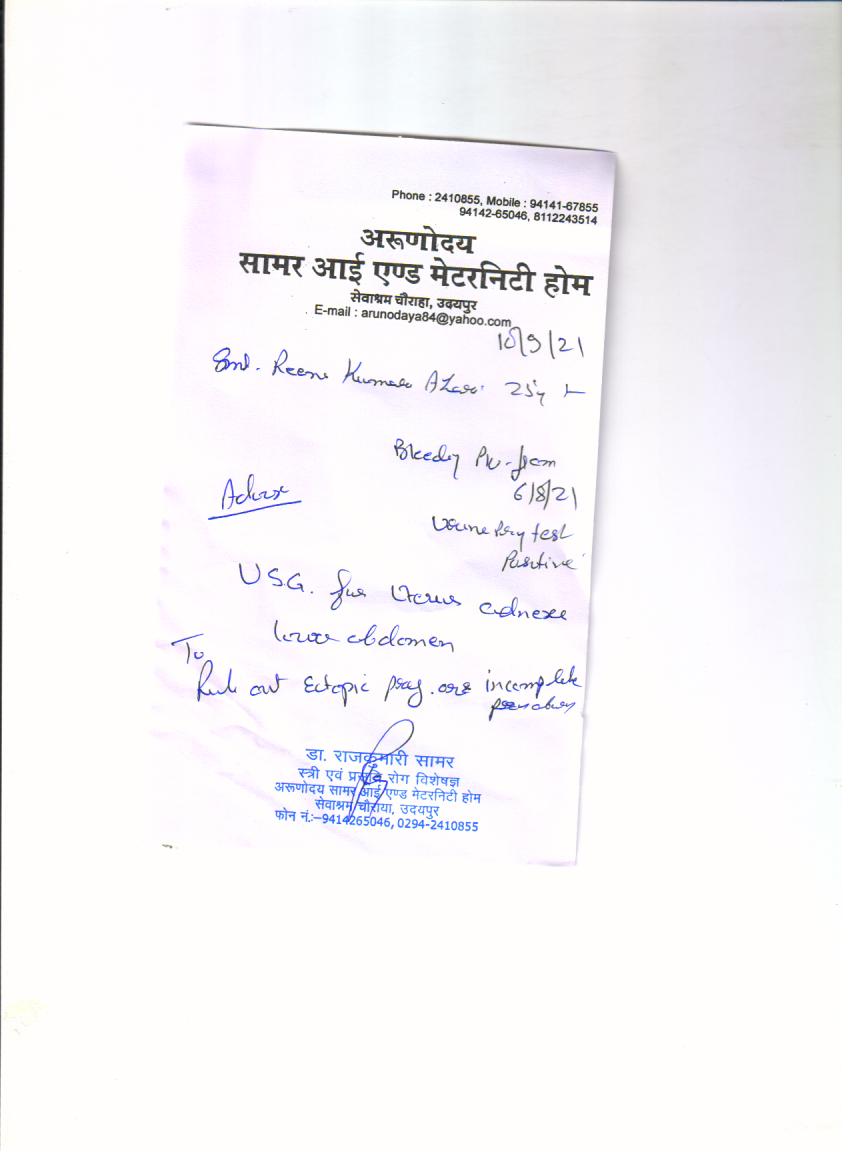 Phone : 2410855, Mobile : 94141-67855
94142-65046, 8112243514
अरूणोदय
सामर आई एण्ड मेटरनिटी होम
सेवाश्रम चौराहा, उदयपुर
E-mail : arunodaya84@yahoo.com
10/9/21
Smt. Reena Kumari 25y
Bleeding P/V - from
6/8/21
Advise
Urine Preg test
Positive
U.S.G. for Uterus adnexa
lower abdomen
To
Rule out Ectopic preg. or incomplete
डा. राजकुमारी सामर
स्त्री एवं प्रसूति रोग विशेषज्ञ
अरूणोदय सामर आई एण्ड मेटरनिटी होम
सेवाश्रम चौराया, उदयपुर
फोन नं.:–9414265046, 0294-2410855